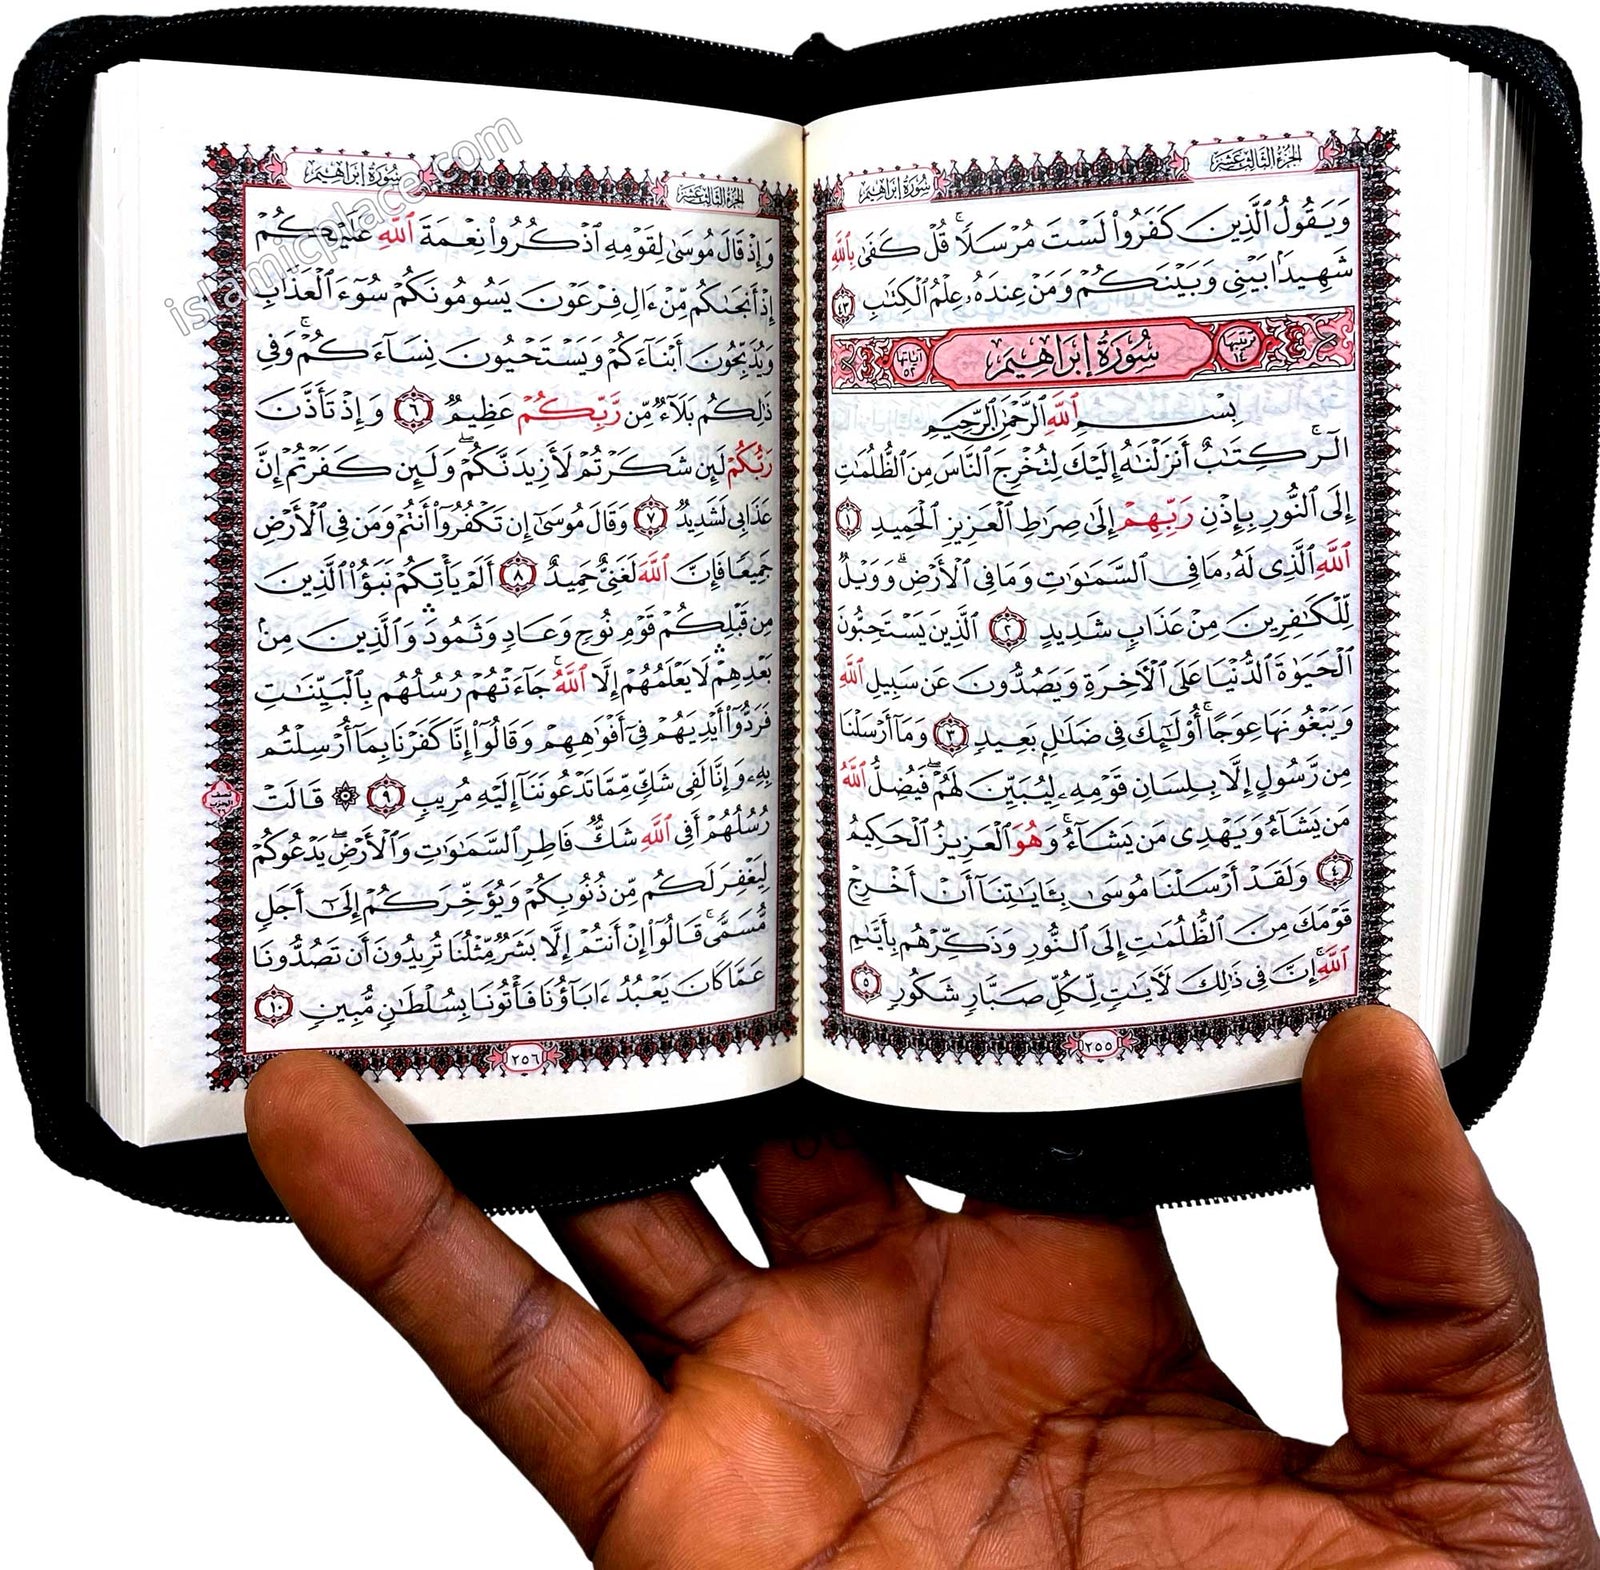 سُورَةُ إِبْرَاهِيم
الجُزْءُ الثَّالِثَ عَشَرَ
وَيَقُولُ ٱلَّذِينَ كَفَرُوا۟ لَسْتَ مُرْسَلًا ۚ قُلْ كَفَىٰ بِٱللَّهِ
شَهِيدًۢا بَيْنِى وَبَيْنَكُمْ وَمَنْ عِندَهُۥ عِلْمُ ٱلْكِتَٰبِ ٤٣
ترتيبها ١٤ سُورَةُ إِبْرَاهِيم آياتها ٥٢
بِسْمِ ٱللَّهِ ٱلرَّحْمَٰنِ ٱلرَّحِيمِ
الٓر ۚ كِتَٰبٌ أَنزَلْنَٰهُ إِلَيْكَ لِتُخْرِجَ ٱلنَّاسَ مِنَ ٱلظُّلُمَٰتِ
إِلَى ٱلنُّورِ بِإِذْنِ رَبِّهِمْ إِلَىٰ صِرَٰطِ ٱلْعَزِيزِ ٱلْحَمِيدِ ١
ٱللَّهِ ٱلَّذِى لَهُۥ مَا فِى ٱلسَّمَٰوَٰتِ وَمَا فِى ٱلْأَرْضِ ۗ وَوَيْلٌ
لِّلْكَٰفِرِينَ مِنْ عَذَابٍ شَدِيدٍ ٢ ٱلَّذِينَ يَسْتَحِبُّونَ
ٱلْحَيَوٰةَ ٱلدُّنْيَا عَلَى ٱلْءَاخِرَةِ وَيَصُدُّونَ عَن سَبِيلِ ٱللَّهِ
وَيَبْغُونَهَا عِوَجًا ۚ أُو۟لَٰٓئِكَ فِى ضَلَٰلٍۭ بَعِيدٍ ٣ وَمَآ أَرْسَلْنَا
مِن رَّسُولٍ إِلَّا بِلِسَانِ قَوْمِهِۦ لِيُبَيِّنَ لَهُمْ ۖ فَيُضِلُّ ٱللَّهُ
مَن يَشَآءُ وَيَهْدِى مَن يَشَآءُ ۚ وَهُوَ ٱلْعَزِيزُ ٱلْحَكِيمُ
٤ وَلَقَدْ أَرْسَلْنَا مُوسَىٰ بِـَٔايَٰتِنَآ أَنْ أَخْرِجْ
قَوْمَكَ مِنَ ٱلظُّلُمَٰتِ إِلَى ٱلنُّورِ وَذَكِّرْهُم بِأَيَّىٰمِ
ٱللَّهِ ۚ إِنَّ فِى ذَٰلِكَ لَءَايَٰتٍ لِّكُلِّ صَبَّارٍ شَكُورٍ ٥
٢٥٥
سُورَةُ إِبْرَاهِيم
الجُزْءُ الثَّالِثَ عَشَرَ
وَإِذْ قَالَ مُوسَىٰ لِقَوْمِهِ ٱذْكُرُوا۟ نِعْمَةَ ٱللَّهِ عَلَيْكُمْ
إِذْ أَنجَىٰكُم مِّنْ ءَالِ فِرْعَوْنَ يَسُومُونَكُمْ سُوٓءَ ٱلْعَذَابِ
وَيُذَبِّحُونَ أَبْنَآءَكُمْ وَيَسْتَحْيُونَ نِسَآءَكُمْ ۚ وَفِى
ذَٰلِكُم بَلَآءٌ مِّن رَّبِّكُمْ عَظِيمٌ ٦ وَإِذْ تَأَذَّنَ
رَبُّكُمْ لَئِن شَكَرْتُمْ لَأَزِيدَنَّكُمْ ۖ وَلَئِن كَفَرْتُمْ إِنَّ
عَذَابِى لَشَدِيدٌ ٧ وَقَالَ مُوسَىٰٓ إِن تَكْفُرُوٓا۟ أَنتُمْ وَمَن فِى ٱلْأَرْضِ
جَمِيعًا فَإِنَّ ٱللَّهَ لَغَنِىٌّ حَمِيدٌ ٨ أَلَمْ يَأْتِكُمْ نَبَؤُا۟ ٱلَّذِينَ
مِن قَبْلِكُمْ قَوْمِ نُوحٍ وَعَادٍ وَثَمُودَ ۛ وَٱلَّذِينَ مِنۢ
بَعْدِهِمْ ۛ لَا يَعْلَمُهُمْ إِلَّا ٱللَّهُ ۚ جَآءَتْهُمْ رُسُلُهُم بِٱلْبَيِّنَٰتِ
فَرَدُّوٓا۟ أَيْدِيَهُمْ فِىٓ أَفْوَٰهِهِمْ وَقَالُوٓا۟ إِنَّا كَفَرْنَا بِمَآ أُرْسِلْتُم
بِهِۦ وَإِنَّا لَفِى شَكٍّ مِّمَّا تَدْعُونَنَآ إِلَيْهِ مُرِيبٍ ٩ ۞ قَالَتْ
رُسُلُهُمْ أَفِى ٱللَّهِ شَكٌّ فَاطِرِ ٱلسَّمَٰوَٰتِ وَٱلْأَرْضِ ۖ يَدْعُوكُمْ
لِيَغْفِرَ لَكُم مِّن ذُنُوبِكُمْ وَيُؤَخِّرَكُمْ إِلَىٰٓ أَجَلٍ
مُّسَمًّى ۚ قَالُوٓا۟ إِنْ أَنتُمْ إِلَّا بَشَرٌ مِّثْلُنَا تُرِيدُونَ أَن تَصُدُّونَا
عَمَّا كَانَ يَعْبُدُ ءَابَآؤُنَا فَأْتُونَا بِسُلْطَٰنٍ مُّبِينٍ ١٠
نصف الحزب
٢٥٦
islamicplace.com